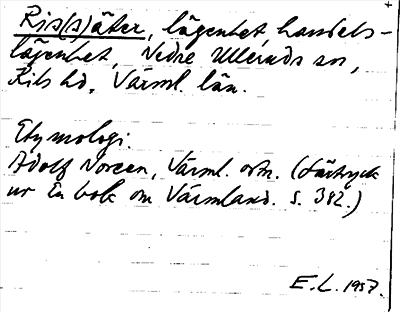 Ris(s)äter, lägenhet, handels-
lägenhet, Nedre Ulleruds sn,
Kils hd, Värml. län.
Etymologi:
Adolf Noreen, Värml. ortn. (Särtryck
ur En bok om Värmland. S. 382.)
E.L. 1957.